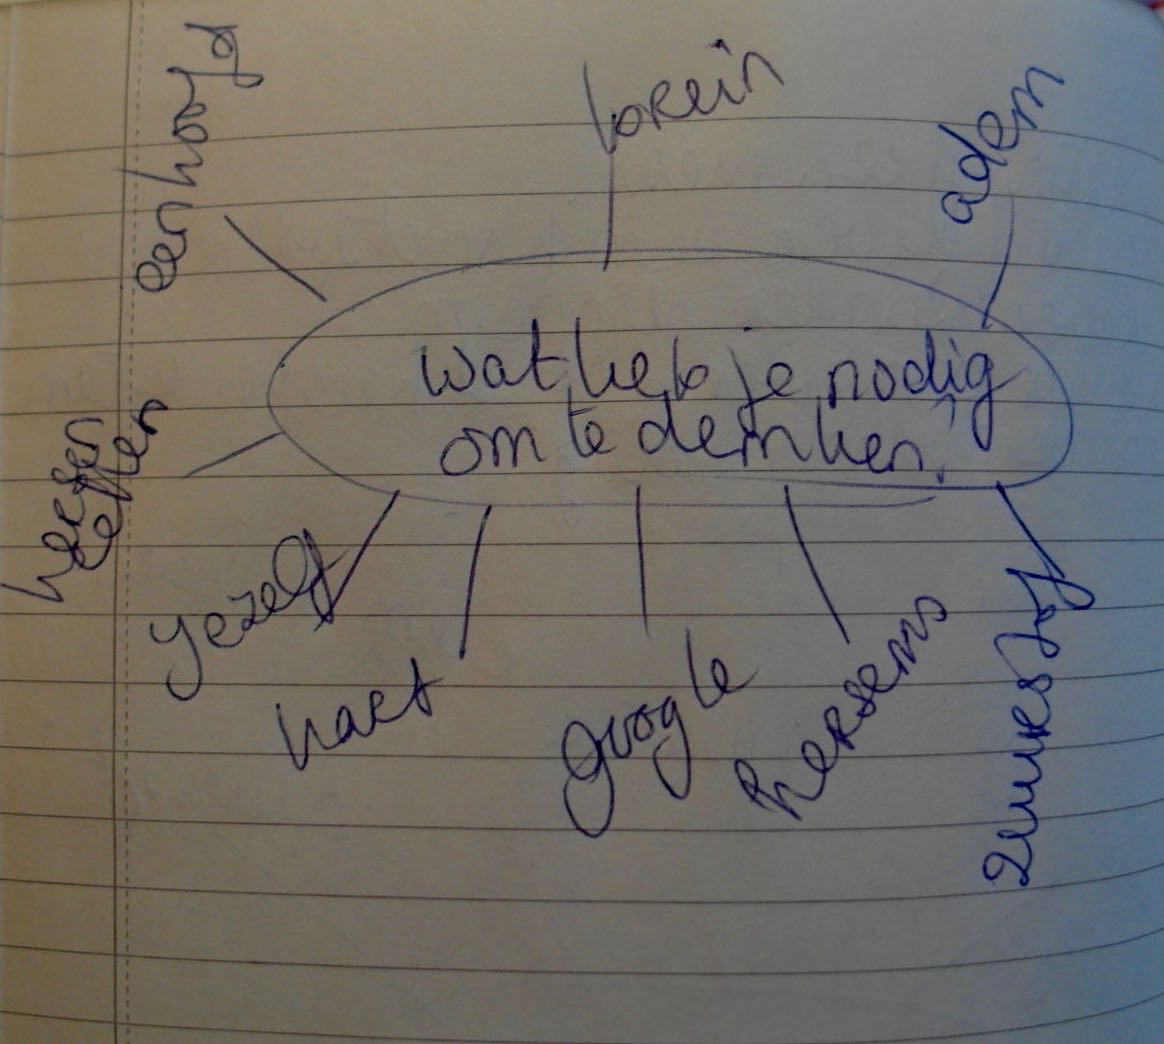 een hoofd
brein
adem
wat heb je nodig
om te denken?
hersen
cellen
jezelf
hart
google
hersens
zuurstof